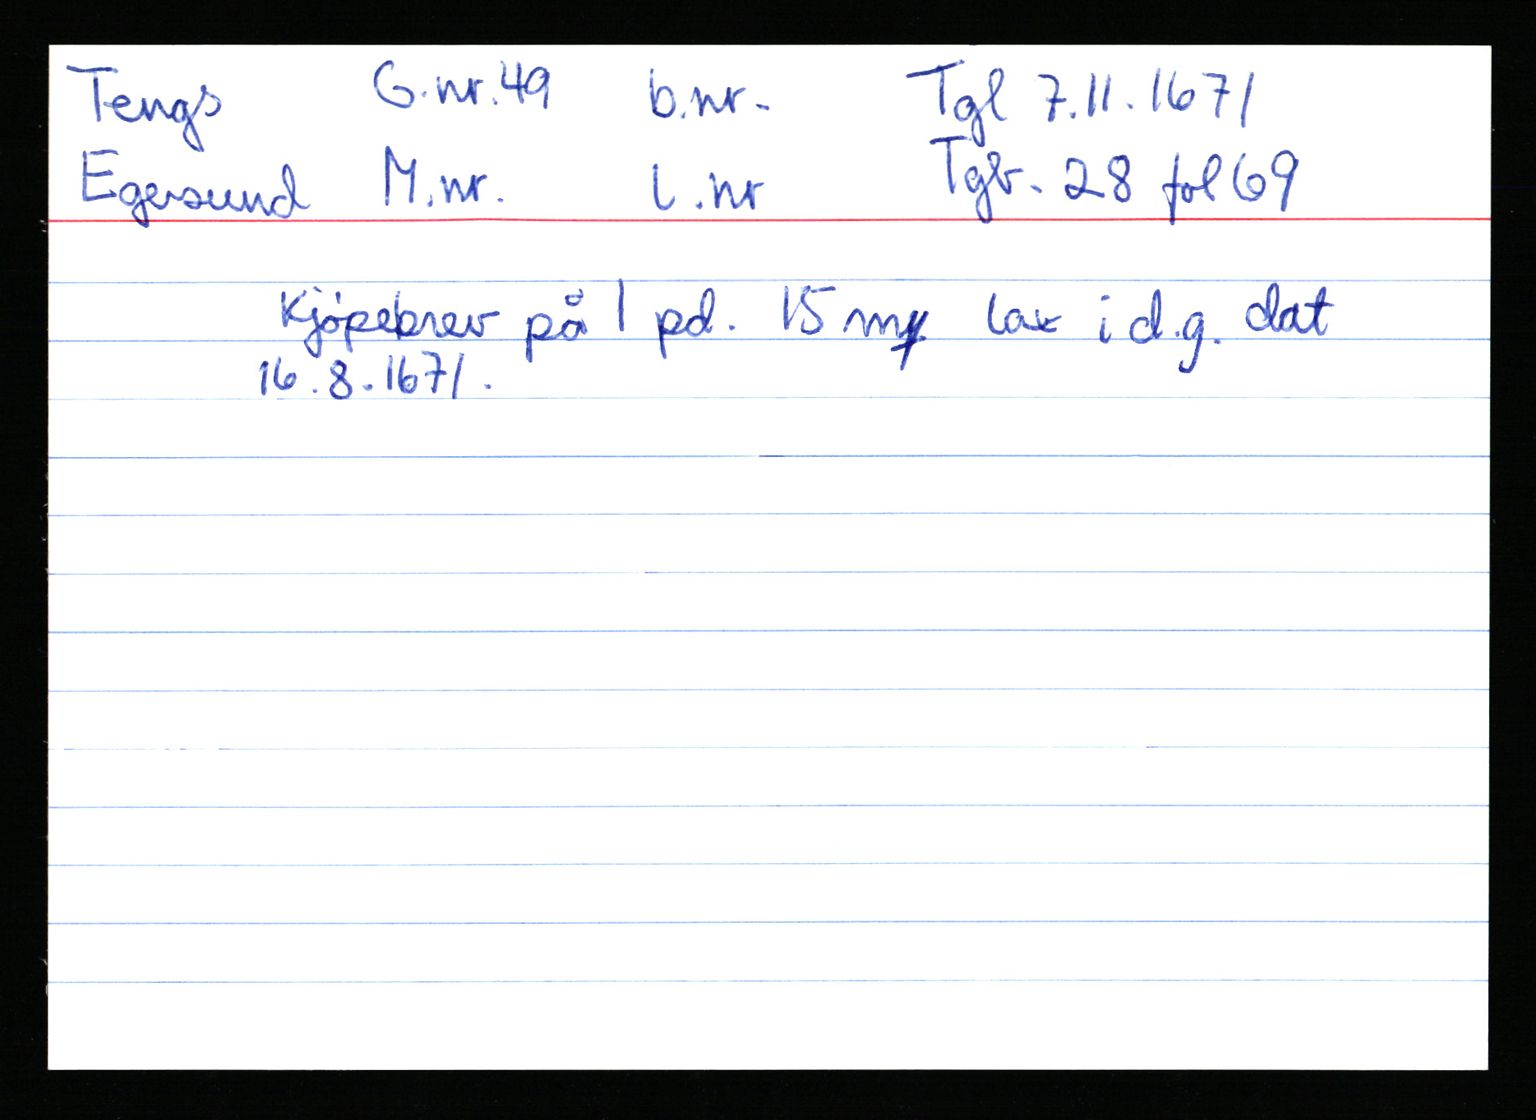 Tengs G.nr.49 b.nr. Tgl 7.11.1671
Egersund M.nr. l.nr Tgb. 28 fol 69
Kjøpebrev på 1 pd. 15 mq lax i d.g. dat
16.8.1671.